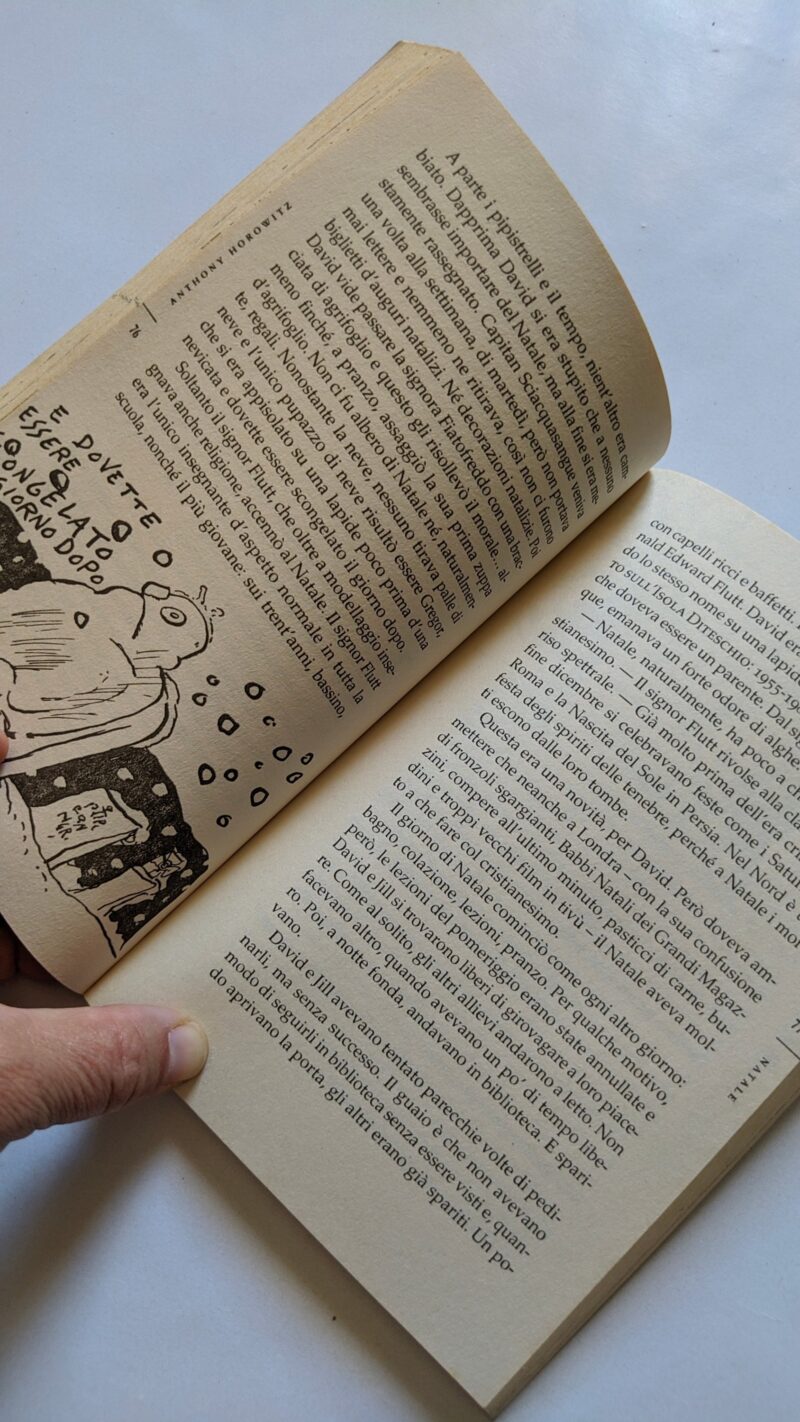 76
ANTHONY HOROWITZ
A parte i pipistrelli e il tempo, nient'altro era cam-
biato. Dapprima David si era stupito che a nessuno
sembrasse importare del Natale, ma alla fine si era me-
stamente rassegnato. Capitan Sciacquasangue veniva
una volta alla settimana, di martedì, però non portava
mai lettere e nemmeno ne ritirava, così non ci furono
biglietti d'auguri natalizi. Né decorazioni natalizie. Poi
David vide passare la signora Fiatofreddo con una brac-
ciata di agrifoglio e questo gli risollevò il morale... al-
meno finché, a pranzo, assaggiò la sua prima zuppa
d'agrifoglio. Non ci fu albero di Natale né, naturalmen-
te, regali. Nonostante la neve, nessuno tirava palle di
neve e l'unico pupazzo di neve risultò essere Gregor,
che si era appisolato su una lapide poco prima d'una
nevicata e dovette essere scongelato il giorno dopo.
Soltanto il signor Flutt, che oltre a modellaggio inse-
gnava anche religione, accennò al Natale. Il signor Flutt
era l'unico insegnante d'aspetto normale in tutta la
scuola, nonché il più giovane: sui trent'anni, bassino,
E DOVETTE
ESSERE
CONGELATO
GIORNO DOPO
NATALE
con capelli ricci e baffetti.
nald Edward Flutt. David era
do lo stesso nome su una lapid
TO SULL'ISOLA DITESCHIO: 1955-19
che doveva essere un parente. Dal si
que, emanava un forte odore di alghe
— Natale, naturalmente, ha poco a ch
stianesimo. — Il signor Flutt rivolse alla cla
riso spettrale. — Già molto prima dell'era cri
fine dicembre si celebravano feste come i Satur
Roma e la Nascita del Sole in Persia. Nel Nord è
festa degli spiriti delle tenebre, perché a Natale i mor
ti escono dalle loro tombe.
Questa era una novità, per David. Però doveva am-
mettere che neanche a Londra – con la sua confusione
di fronzoli sgargianti, Babbi Natali dei Grandi Magaz-
zini, compere all'ultimo minuto, pasticci di carne, bu-
dini e troppi vecchi film in tivù – il Natale aveva mol-
to a che fare col cristianesimo.
Il giorno di Natale cominciò come ogni altro giorno:
bagno, colazione, lezioni, pranzo. Per qualche motivo,
però, le lezioni del pomeriggio erano state annullate e
David e Jill si trovarono liberi di girovagare a loro piace-
re. Come al solito, gli altri allievi andarono a letto. Non
facevano altro, quando avevano un po' di tempo libe-
ro. Poi, a notte fonda, andavano in biblioteca. E spari-
vano.
David e Jill avevano tentato parecchie volte di pedi-
narli, ma senza successo. Il guaio è che non avevano
modo di seguirli in biblioteca senza essere visti e, quan-
do aprivano la porta, gli altri erano già spariti. Un po-